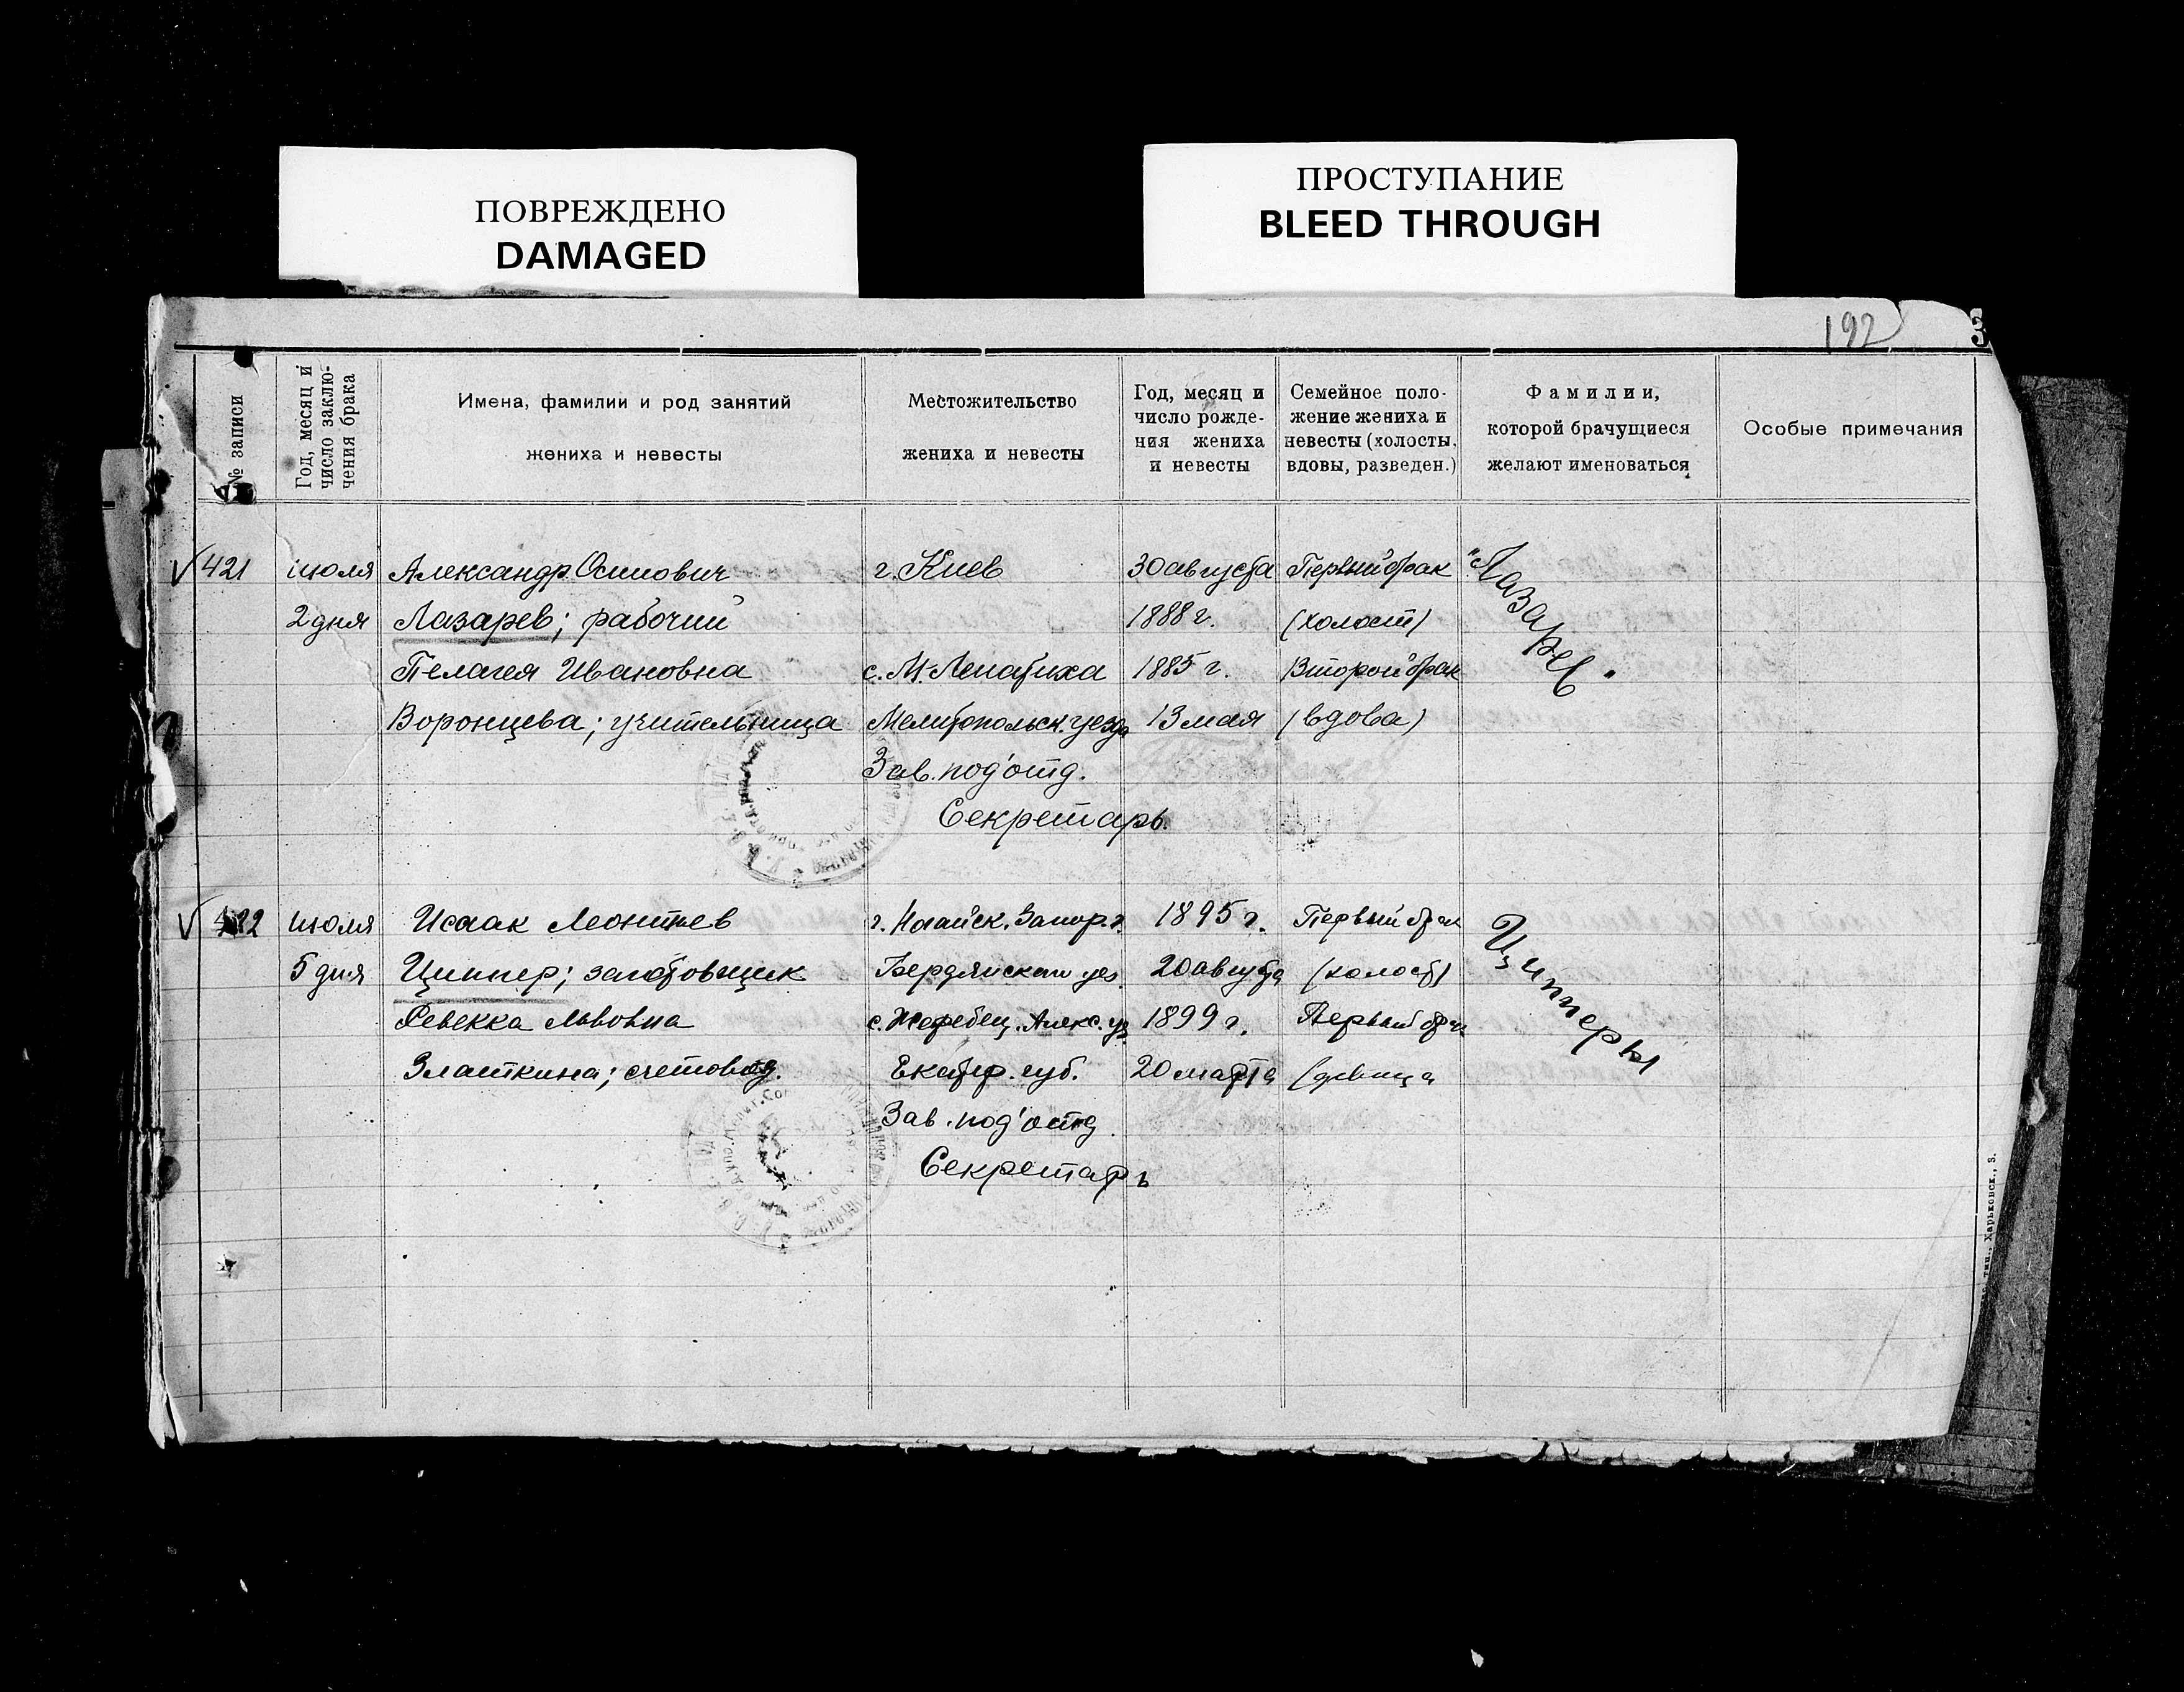 ПОВРЕЖДЕНО
DAMAGED
ПРОСТУПАНИЕ
BLEED THROUGH
192
3
№ записи
Год, месяц и
число заклю-
чения брака
Имена, фамилии и род занятий
жениха и невесты
Местожительство
жениха и невесты
Год, месяц и
число рожде-
ния жениха
и невесты
Семейное поло-
жение жениха и
невесты (холосты,
вдовы, разведен.)
Фамилии,
которой брачущиеся
желают именоваться
Особые примечания
421 июля Александр Осипович г. Киев 30 августа Первый брак "Лазарев"
2 дня Лазарев; рабочий 1888 г. (холост)
Пелагея Ивановна с. М. Лепатиха 1885 г. Второй брак
Воронцева; учительница Мелитопольск. уезда 13 мая (вдова)
Зав. под'отд.
Секретарь
422 июля Исаак Леонтьев г. Ногайск. Запор. г. 1895 г. Первый брак Ципперы
5 дня Циппер; заготовщик Бердянском уез. 20 августа (холост)
Ревекка Львовна с. Жеребец. Алекс. уз. 1899 г. Первый брак
Златкина; счетовод. Екатер. губ. 20 марта (девица
Зав. под'отд
Секретарь
тип., Харьковск., 3.